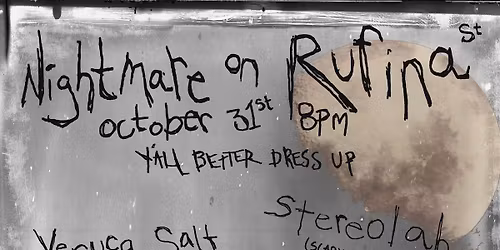 Nightmare on Rufina St
october 31st 8pm
Y'ALL BETTER DRESS UP
Stereolab
Veruca Salt